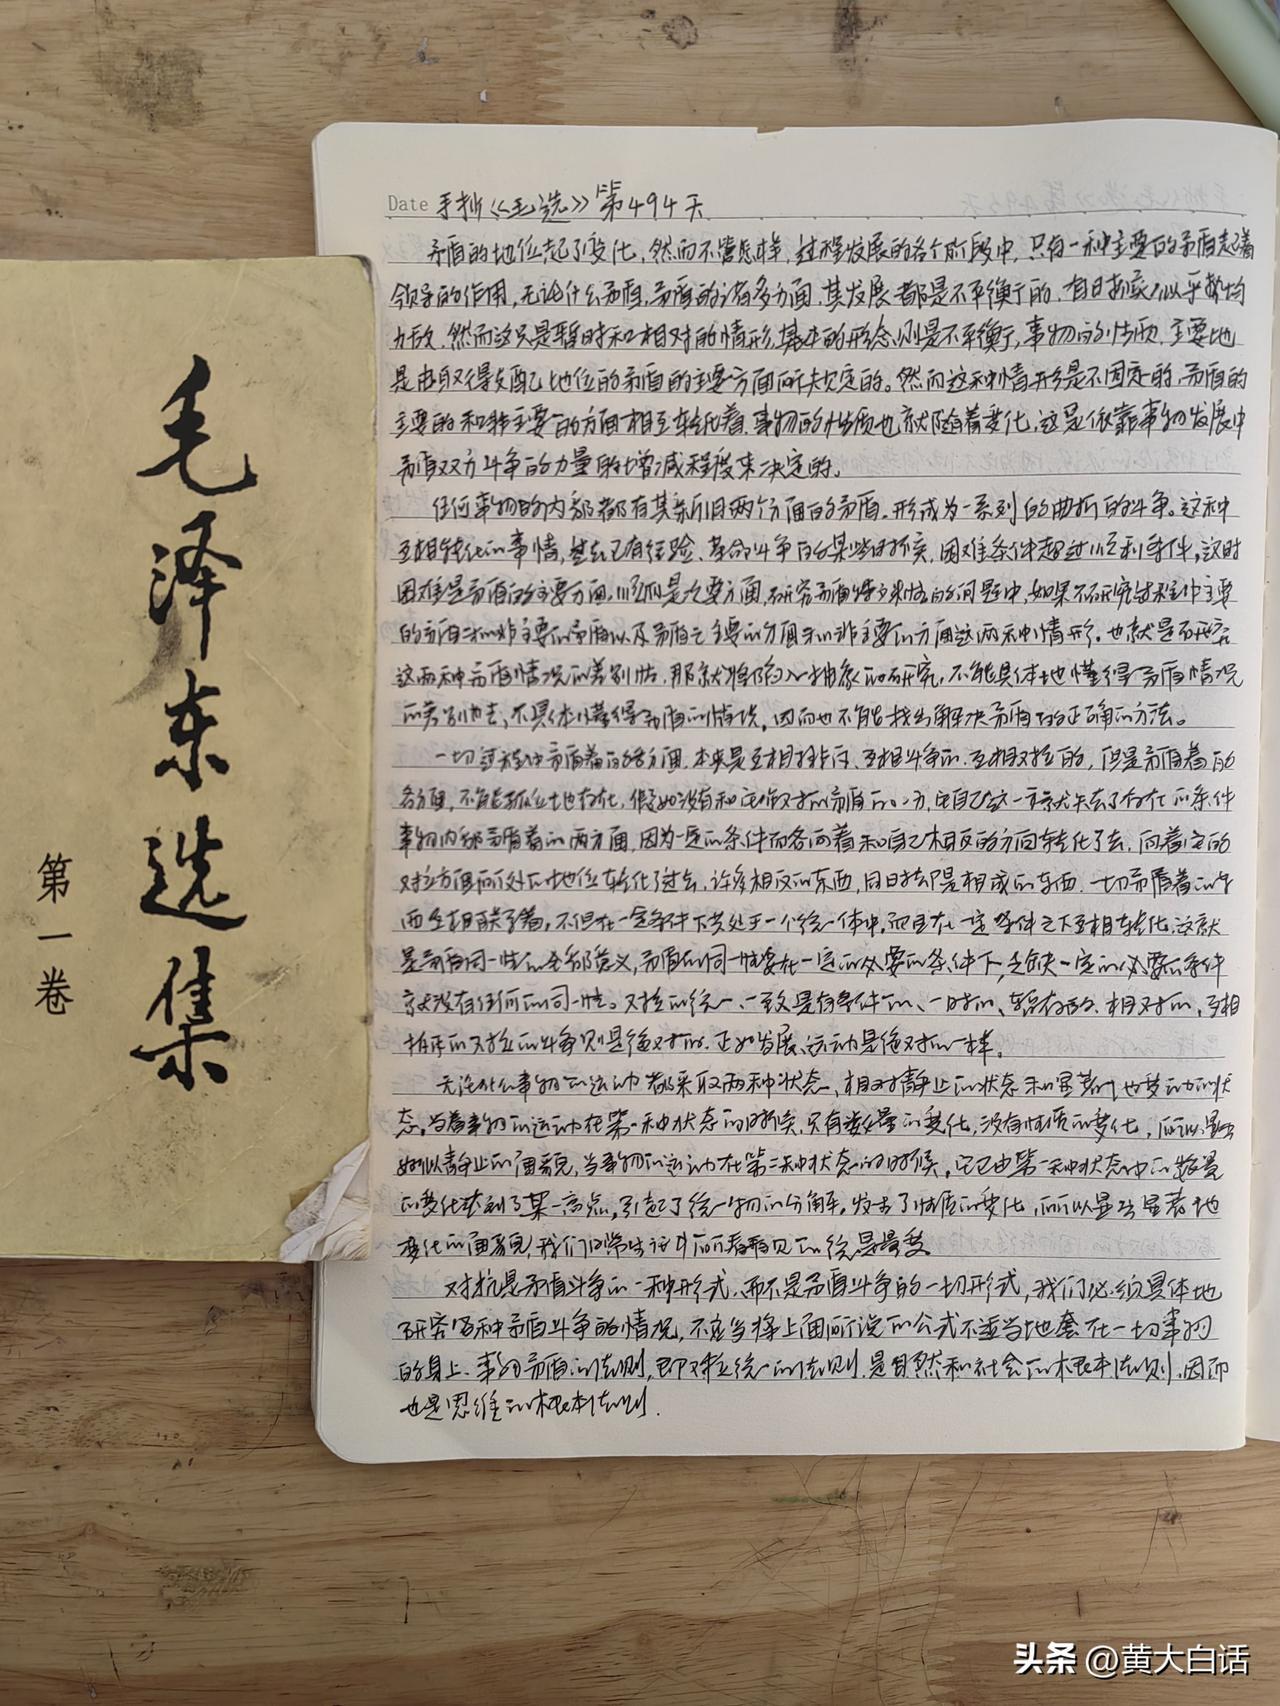 毛泽东选集
第一卷
Date 手抄《毛选》第494天
矛盾的地位起了变化，然而不管怎样，过程发展的各个阶段中，只有一种主要的矛盾起着
领导的作用，无论什么矛盾，矛盾的诸多方面，其发展都是不平衡的，有时候似乎势均
力敌，然而这只是暂时和相对的情形，基本的形态则是不平衡，事物的性质，主要地
是由取得支配地位的矛盾的主要方面所决定的。然而这种情形是不固定的，矛盾的
主要的和非主要的方面相互转化着，事物的性质也就随着变化，这是依靠事物发展中
矛盾双方斗争的力量的增减程度来决定的。
任何事物的内部都有其新旧两个方面的矛盾，形成为一系列的曲折的斗争。这种
互相转化的事情，已有经验，革命斗争的某些时候，困难条件超过顺利条件，这时
困难是矛盾的主要方面，顺利是次要方面，研究矛盾特殊性的问题中，如果不研究过程中主要
的矛盾和非主要的矛盾以及矛盾之主要的方面和非主要的方面这两种情形，也就是不研究
这两种矛盾情况的差别性，那就将陷入抽象的研究，不能具体地懂得矛盾情况
不具体懂得矛盾的情况，因而也不能找出解决矛盾的正确的方法。
一切过程中矛盾着的各方面，本来是互相排斥、互相斗争的、互相对立的，但是矛盾着的
各方面，不能孤立地存在，假如没有和它作对的矛盾的一方，它自己这一方就失去了存在的条件
事物内部矛盾着的两方面，因为一定的条件而各向着和自己相反的方向转化了去，向着它的
对立方面所处的地位转化了过去，许多相反的东西，同时却是相成的东西，一切矛盾着的东
西互相联系着，不但在一定条件下共处于一个统一体中，而且在一定条件之下互相转化，这就
是矛盾同一性的全部意义，矛盾的同一性要在一定的必要的条件下，缺乏一定的必要的条件
就没有任何的同一性。对立的统一、一致是有条件的、一时的、暂存的、相对的，互相
排斥的对立的斗争则是绝对的，正如发展、运动是绝对的一样。
无论什么事物的运动都采取两种状态，相对静止的状态和显著地变动的状
态。当着事物的运动在第一种状态的时候，只有数量的变化，没有性质的变化，所以显出
好似静止的面貌，当事物的运动在第二种状态的时候，它已由第一种状态中的数量
的变化达到了某一高点，引起了统一物的分解，发生了性质的变化，所以显出显著地
变化的面貌，我们日常生活中所看见的统
对抗是矛盾斗争的一种形式，而不是矛盾斗争的一切形式，我们必须具体地
研究各种矛盾斗争的情况，不应当将上面所说的公式不适当地套在一切事物
的身上。事物矛盾的法则，即对立统一的法则，是自然和社会的根本法则，因而
也是思维的根本法则。
头条 @黄大白话